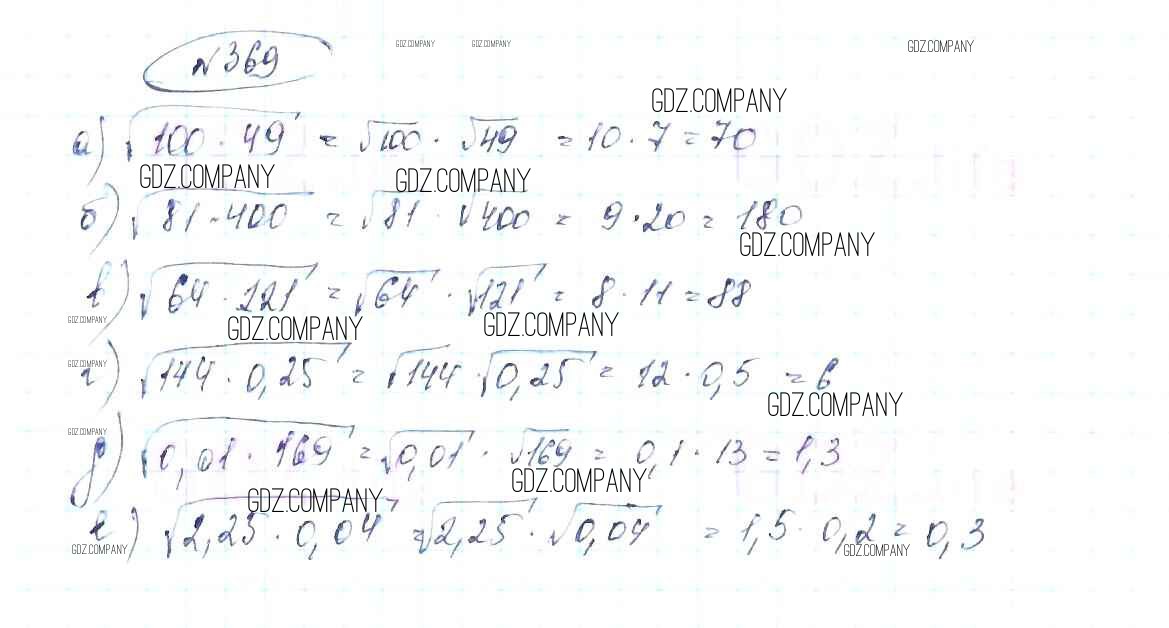 №369
GDZ.COMPANY GDZ.COMPANY GDZ.COMPANY
GDZ.COMPANY
а) √100 · 49 = √100 · √49 = 10 · 7 = 70
GDZ.COMPANY GDZ.COMPANY
б) √81 · 400 = √81 · √400 = 9 · 20 = 180
GDZ.COMPANY
в) √64 · 121 = √64 · √121 = 8 · 11 = 88
GDZ.COMPANY GDZ.COMPANY GDZ.COMPANY
GDZ.COMPANY
г) √144 · 0,25 = √144 · √0,25 = 12 · 0,5 = 6
GDZ.COMPANY
GDZ.COMPANY
д) √0,01 · 169 = √0,01 · √169 = 0,1 · 13 = 1,3
GDZ.COMPANY GDZ.COMPANY
е) √2,25 · 0,04 = √2,25 · √0,04 = 1,5 · 0,2 = 0,3
GDZ.COMPANY GDZ.COMPANY